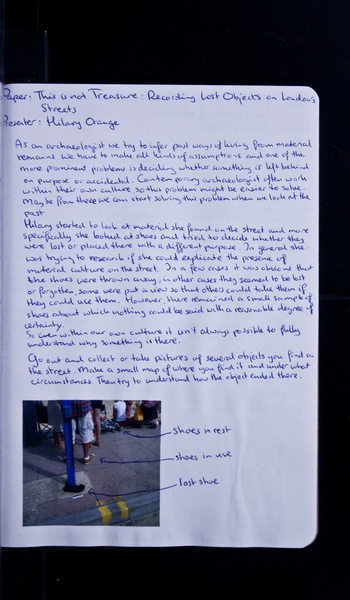 Paper: This is not Treasure: Recording Lost Objects on London's
Streets
Presenter: Hilary Orange
As an archaeologist we try to infer past ways of living from material
remains. We have to make all kinds of assumptions and one of the
more prominent problems is deciding whether something is left behind
on purpose or accidental. Contemporary archaeologist often work
within their own culture so this problem might be easier to solve.
Maybe from there we can start solving this problem when we look at the
past
Hilary started to look at material she found on the street and more
specifically she looked at shoes and tried to decide whether they
were lost or placed there with a different purpose. In general she
was trying to research if she could explicate the presence of
material culture on the street. In a few cases it was obvious that
the shoes were thrown away, in other cases they seemed to be lost
or forgotten, some were put in view so that others could take them if
they could use them. However, there remained a small sample of
shoes about which nothing could be said with a reasonable degree of
certainty.
So even within our own culture it isn't always possible to fully
understand why something is there.
Go out and collect or take pictures of several objects you find on
the street. Make a small map of where you find it and under what
circumstances. Then try to understand how the object ended there.
shoes in rest
shoes in use
lost shoe